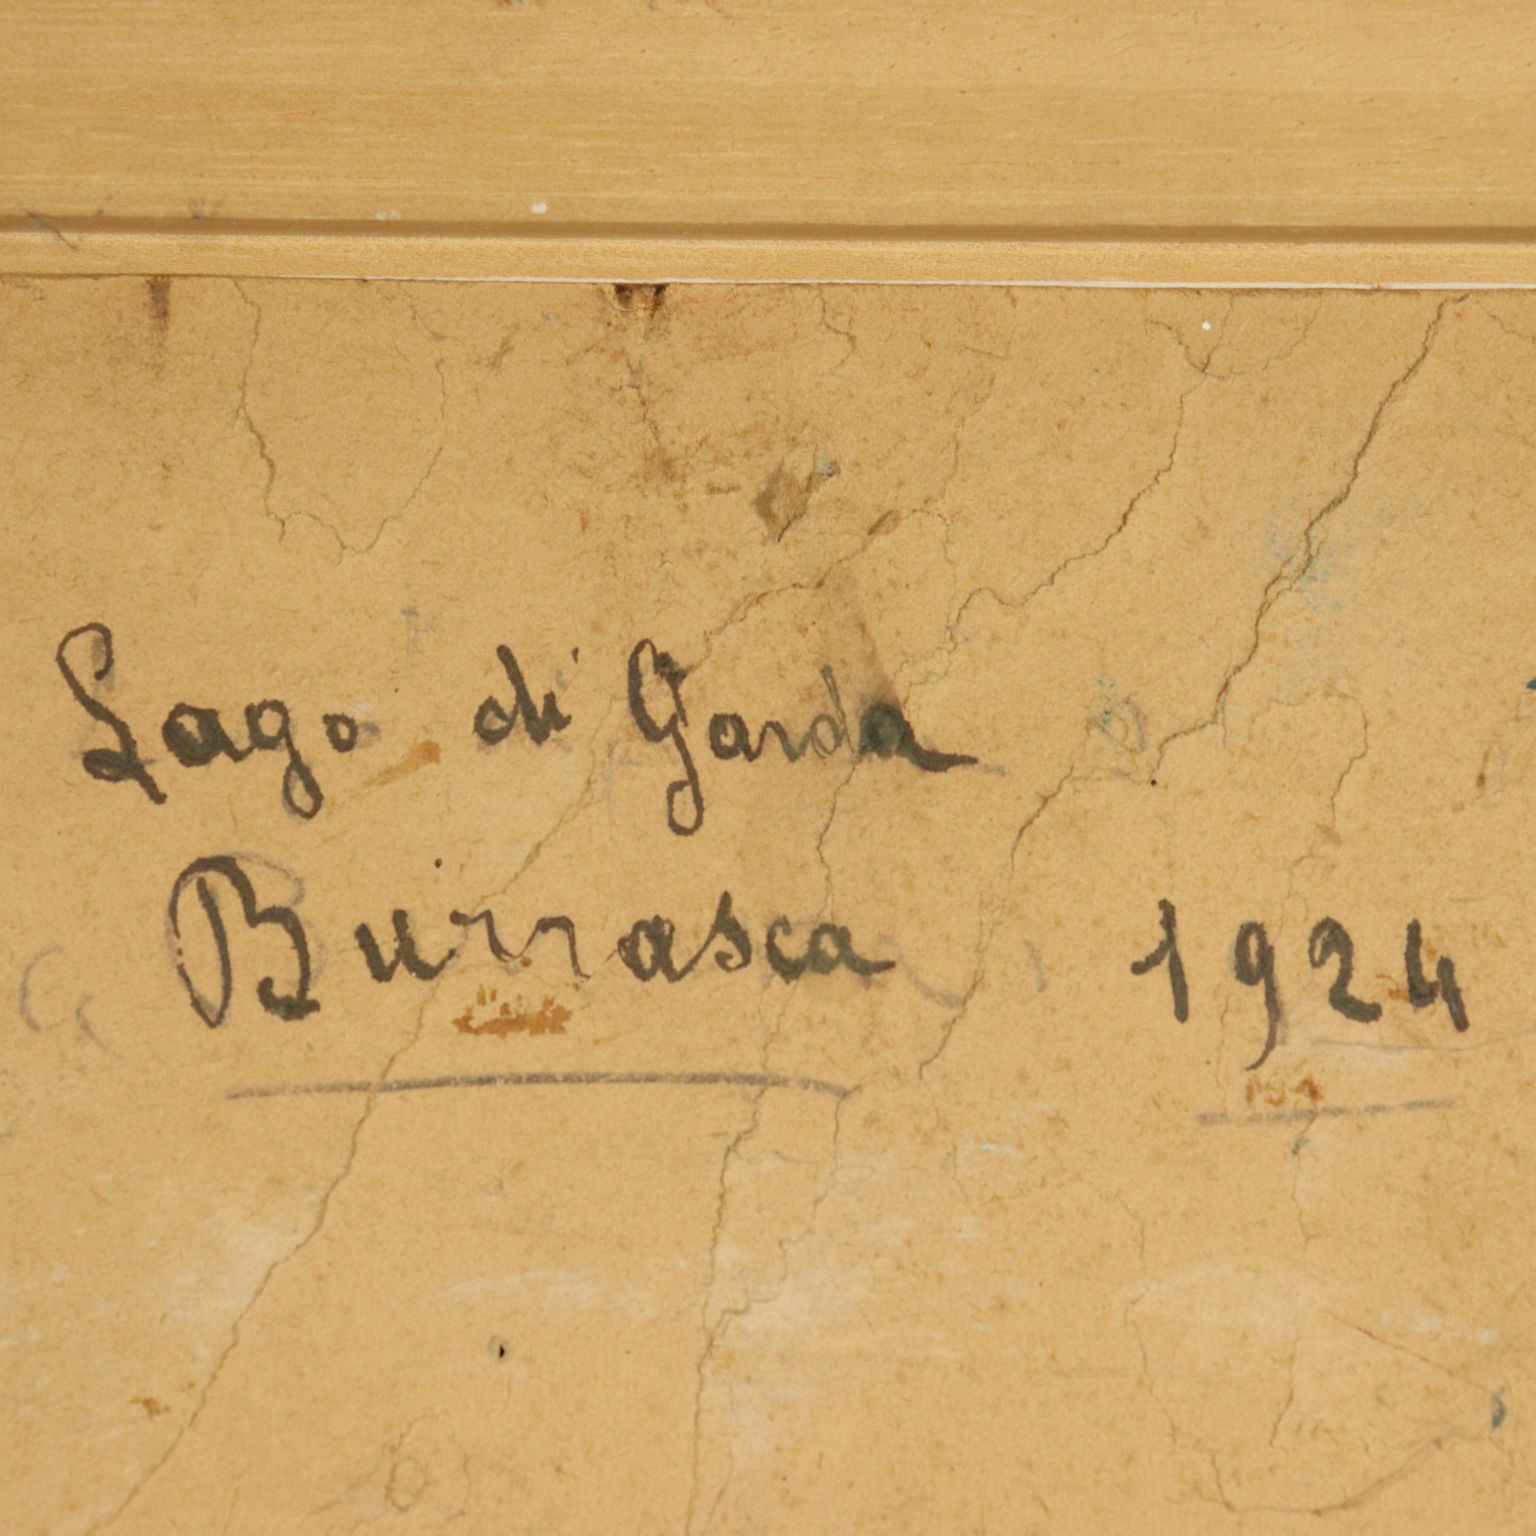 Lago di Garda
Burrasca 1924